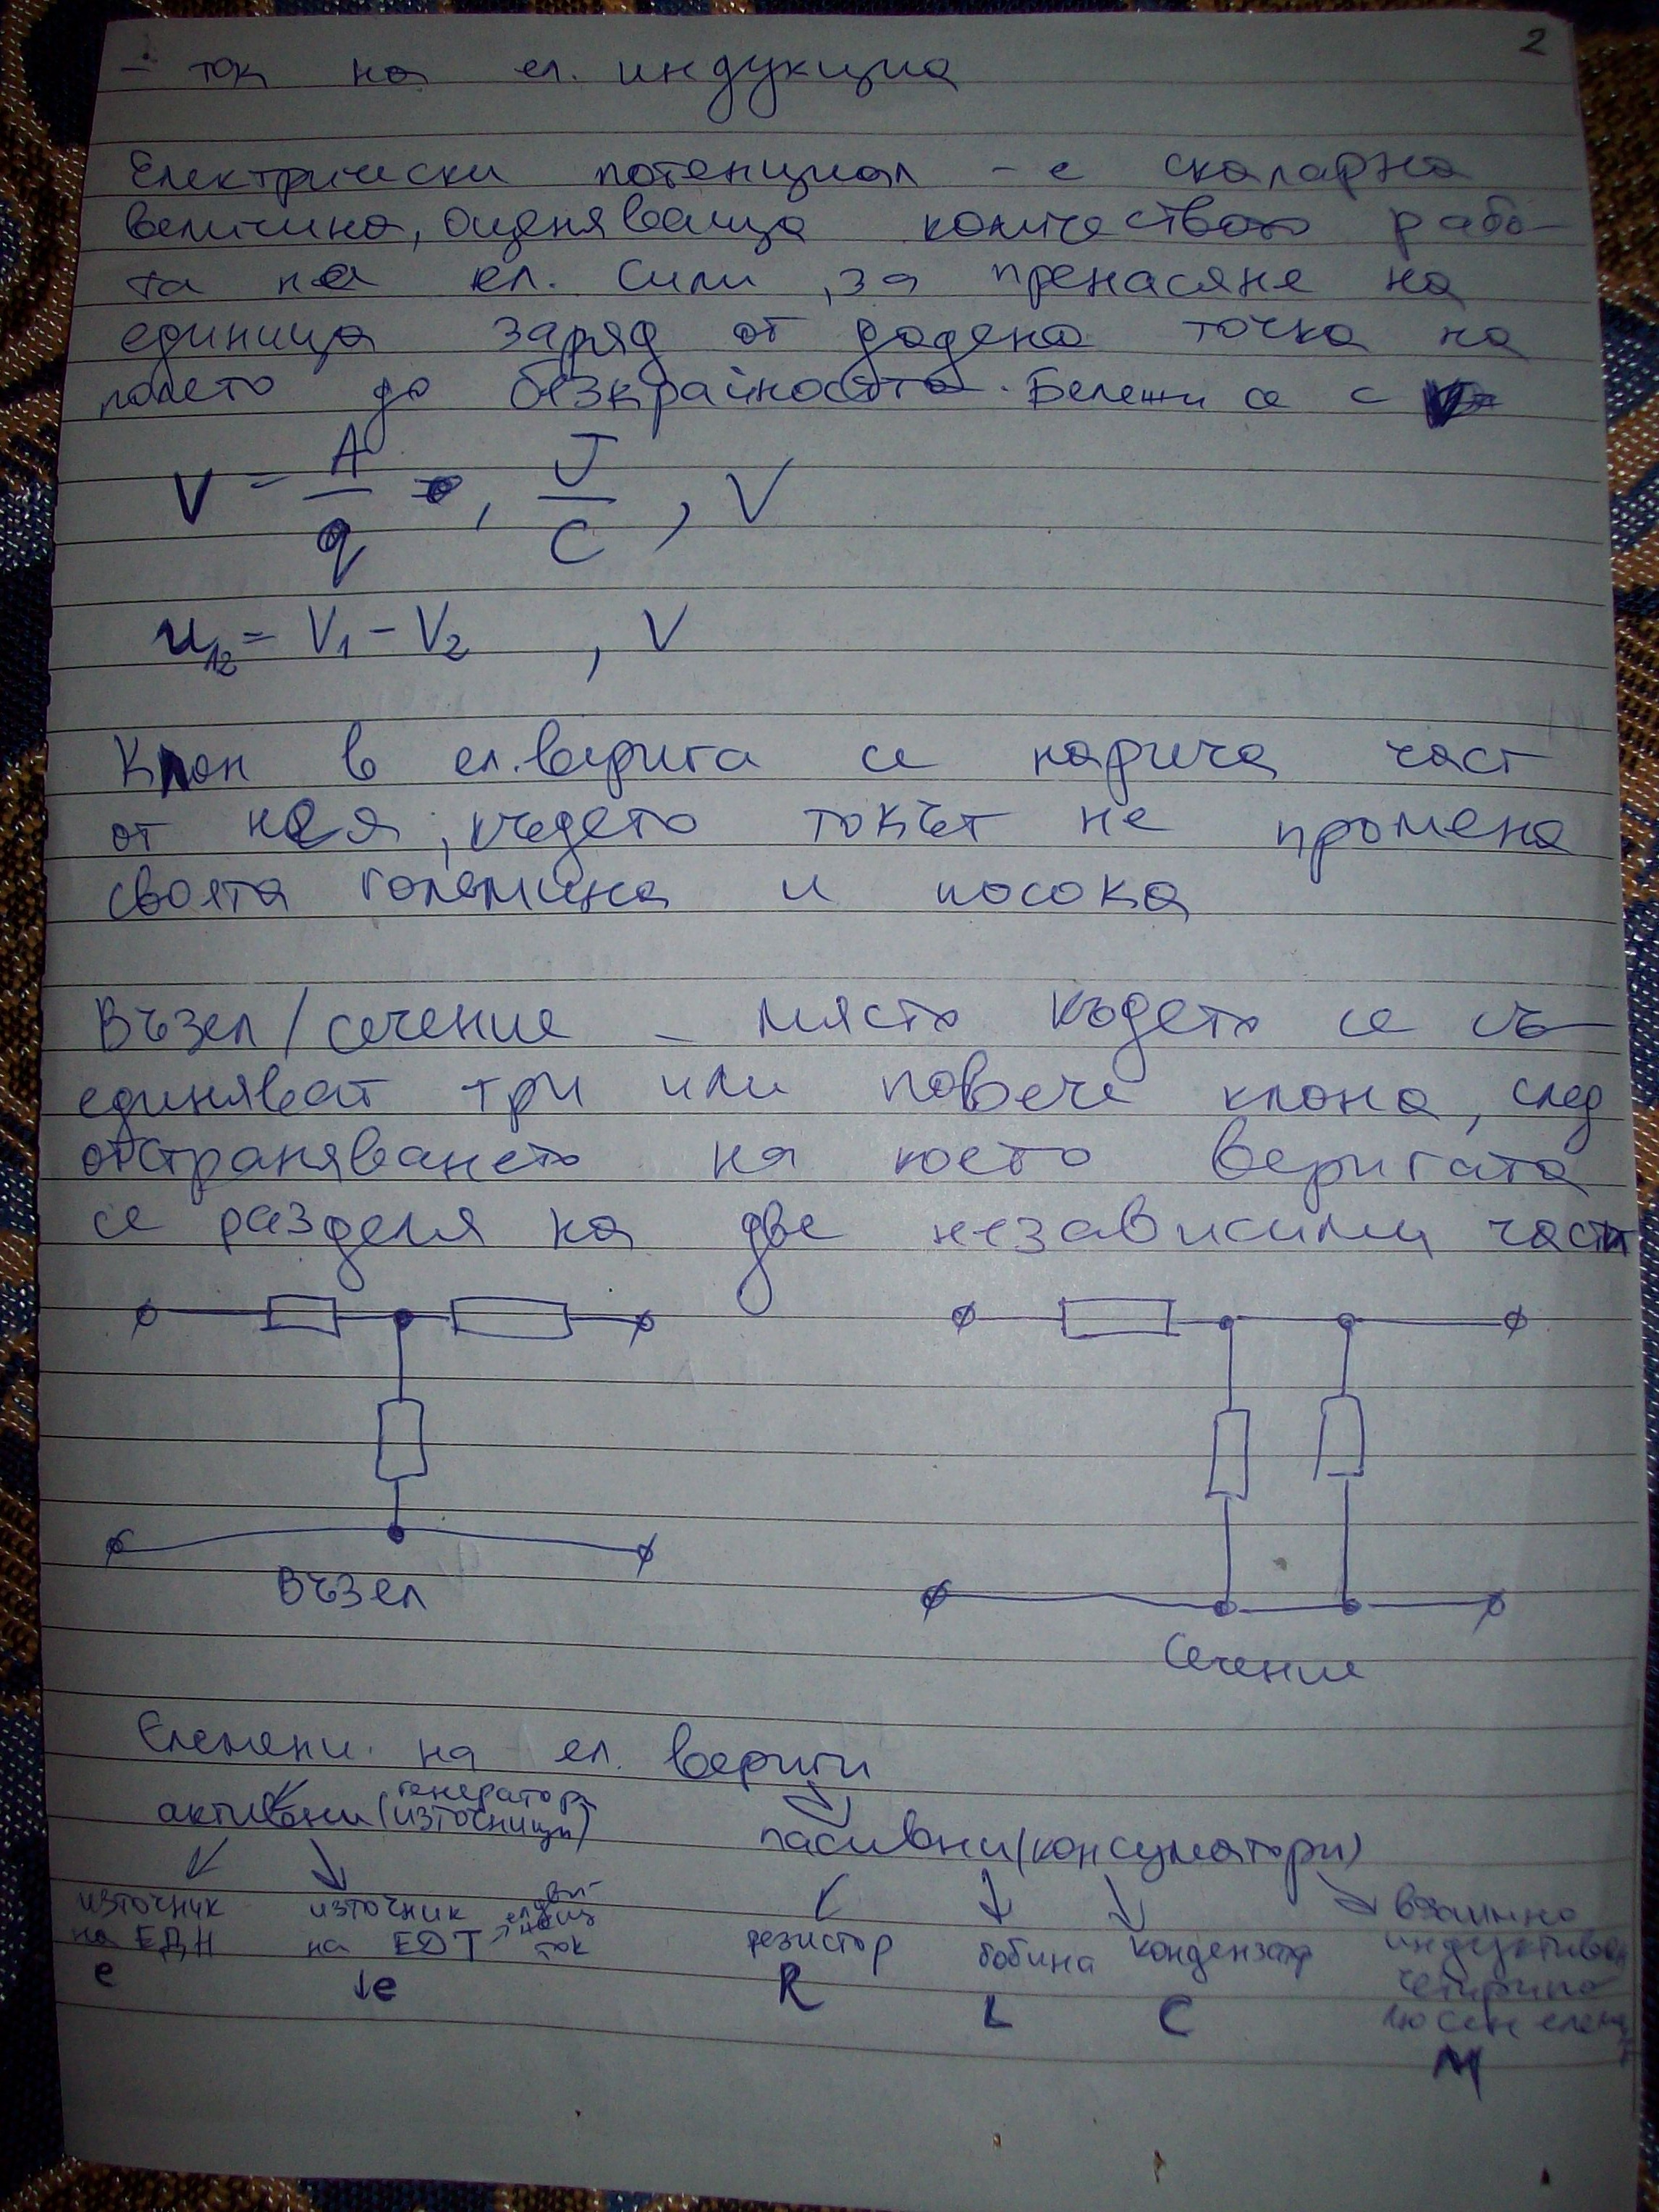 2
- ток на ел. индукция
Електрически потенциал - е скаларна
величина, оценяваща количеството рабо-
та на ел. сили, за пренасяне на
единица заряд от дадена точка на
полето до безкрайността. Бележи се с V
V = A/q , J/C , V
u12 = V1 - V2 , V
Клон в ел. верига се нарича част
от нея, където токът не променя
своята големина и посока
Възел / сечение - място където се съ-
единяват три или повече клона, след
отстраняването на което веригата
се разделя на две независими части
Възел
Сечение
Елементи на ел. вериги
активни (генератори
източници)
пасивни (консуматори)
източник
на ЕДН
e
източник
на ЕДТ
ток
резистор
R
бобина
L
кондензатор
C
взаимно
индуктивен
четирипо
люсен елемент
M